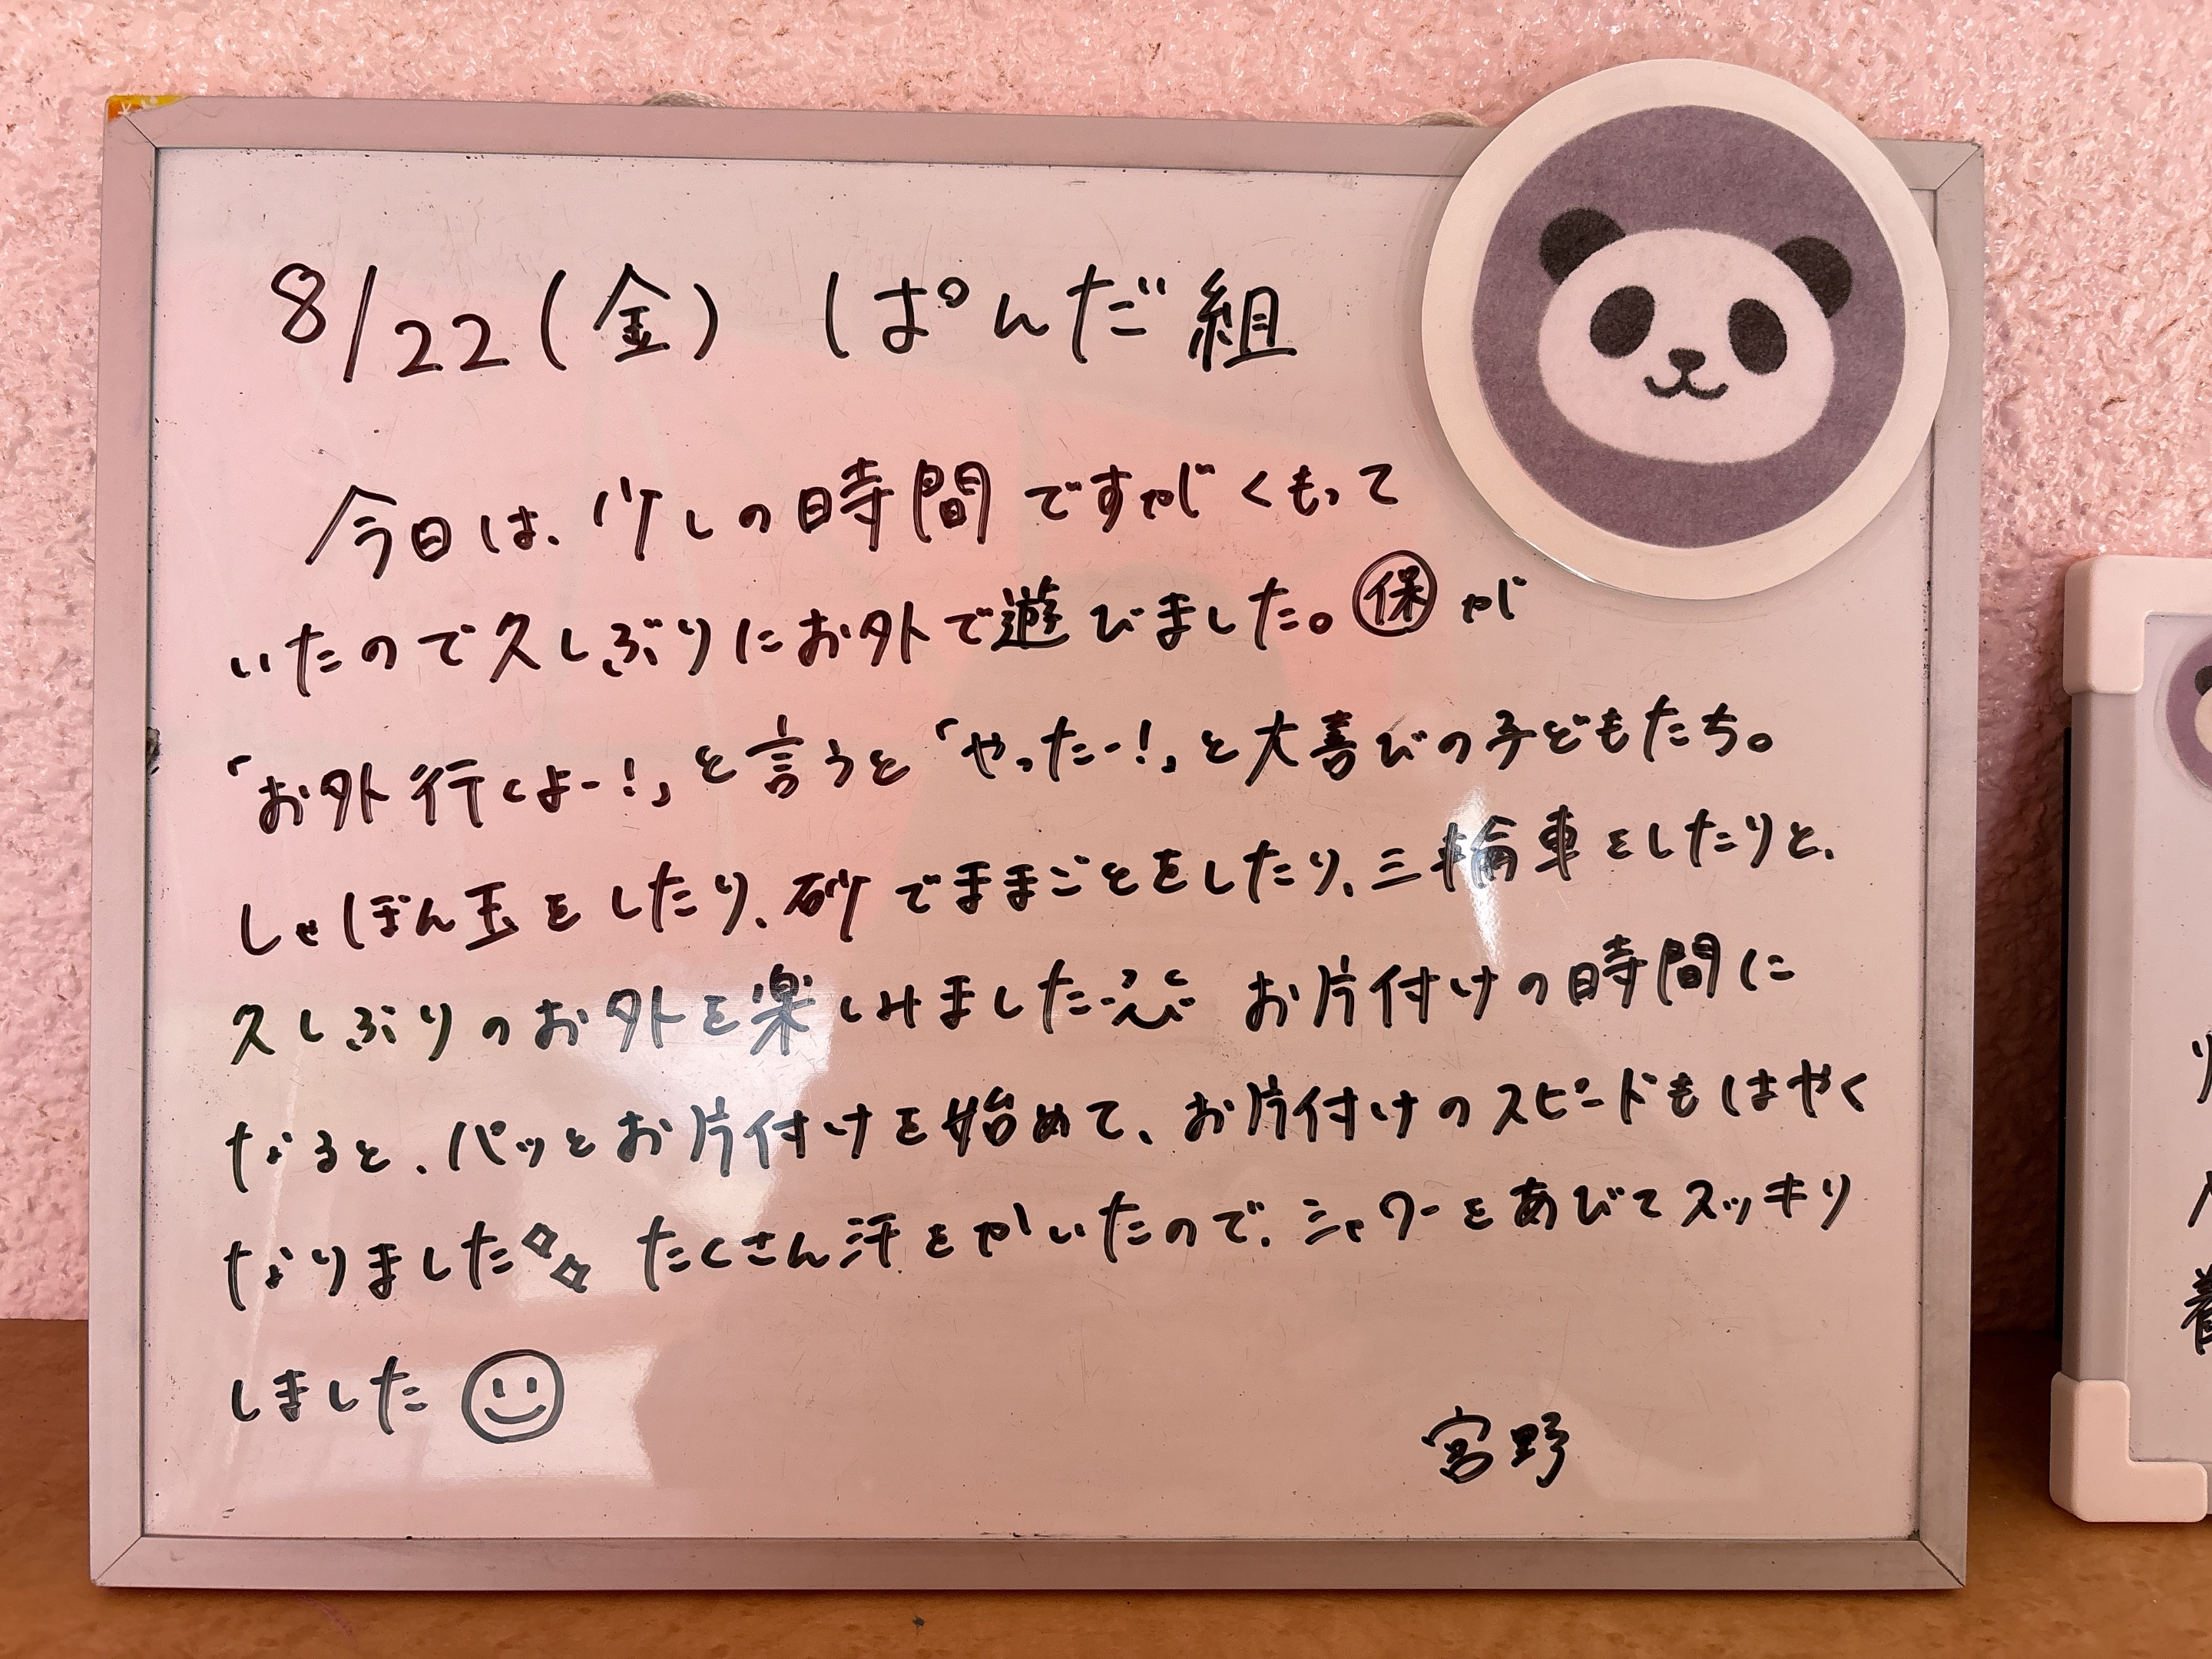 8/22(金) ぱんだ組
今日は、少しの時間ですがくもって
いたので久しぶりにお外で遊びました。㋭が
「お外行くよー!」と言うと「やったー!」と大喜びの子どもたち。
しゃぼん玉をしたり、砂でままごとをしたり、三輪車をしたりと、
久しぶりのお外を楽しみました お片付けの時間に
なると、パッとお片付けを始めて、お片付けのスピードもはやく
なりました たくさん汗をかいたので、シャワーをあびてスッキリ
しました
宮野